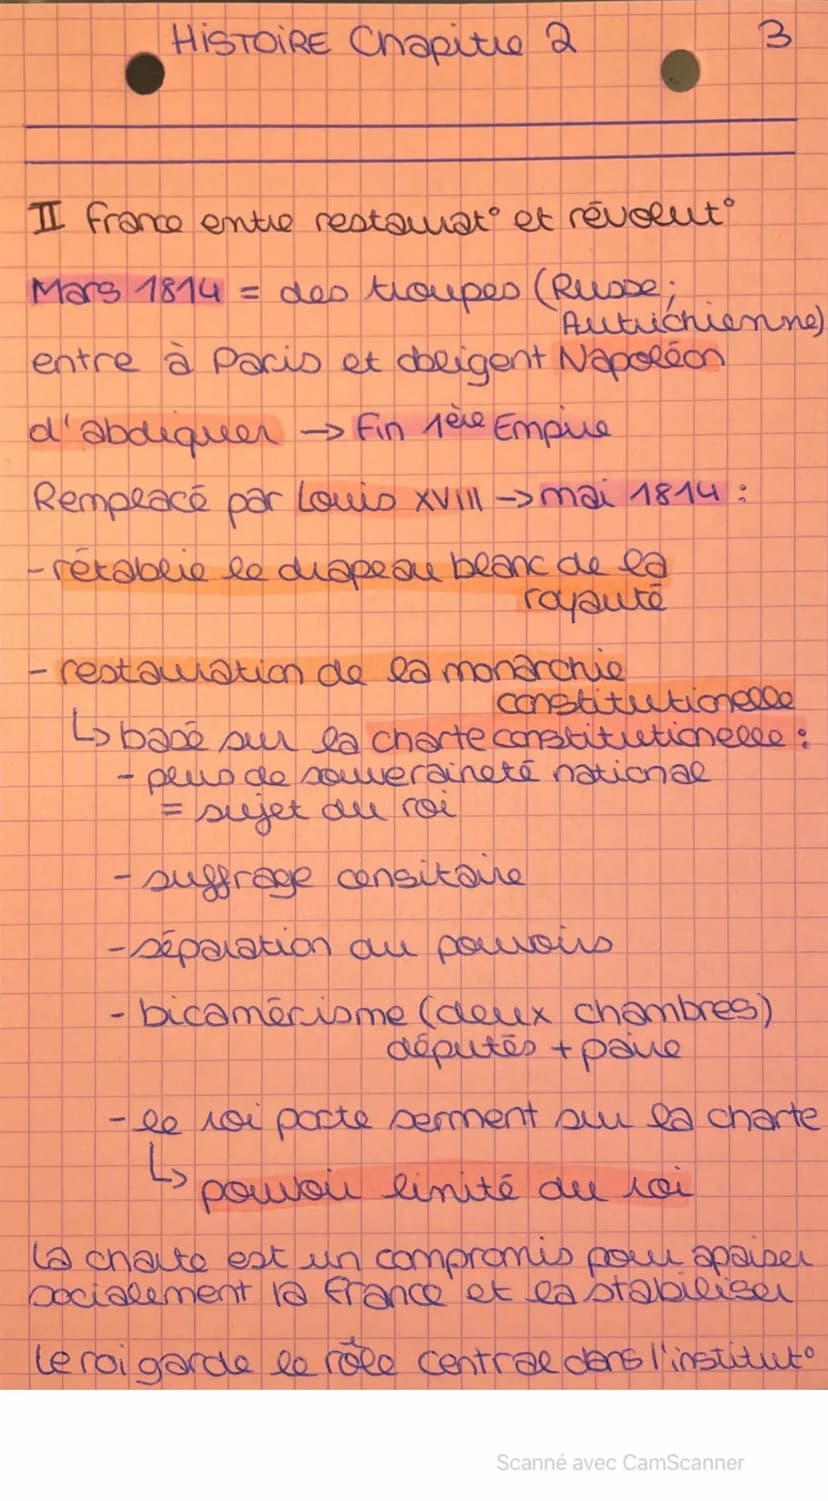 HISTOIRE Chapitre 2
3
II France entre restaurat° et révolut°
Mars 1814 = des troupes (Russe;
Autrichienne)
entre à Paris et obligent Napoléon
d'abdiquer → Fin 1ère Empire
Remplacé par Louis XVIII → mai 1814 :
- rétablie le drapeau blanc de la
royauté
- restauration de la monarchie
constitutionelle
↳ basé sur la charte constitutionelle :
- plus de souveraineté national
= sujet du roi
- suffrage censitaire
- séparation du pouvoirs
- bicamérisme (deux chambres)
députés + paire
- le roi porte serment sur la charte
↳ pouvoir limité du roi
La charte est un compromis pour apaiser
socialement la France et la stabiliser
Le roi garde le rôle central dans l'institut°
Scanné avec CamScanner